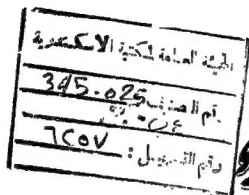 الهيئة العامة لمكتبة الاسكندرية
رقم التصنيف 345.025
رقم التسجيل : ٦٢٥٧